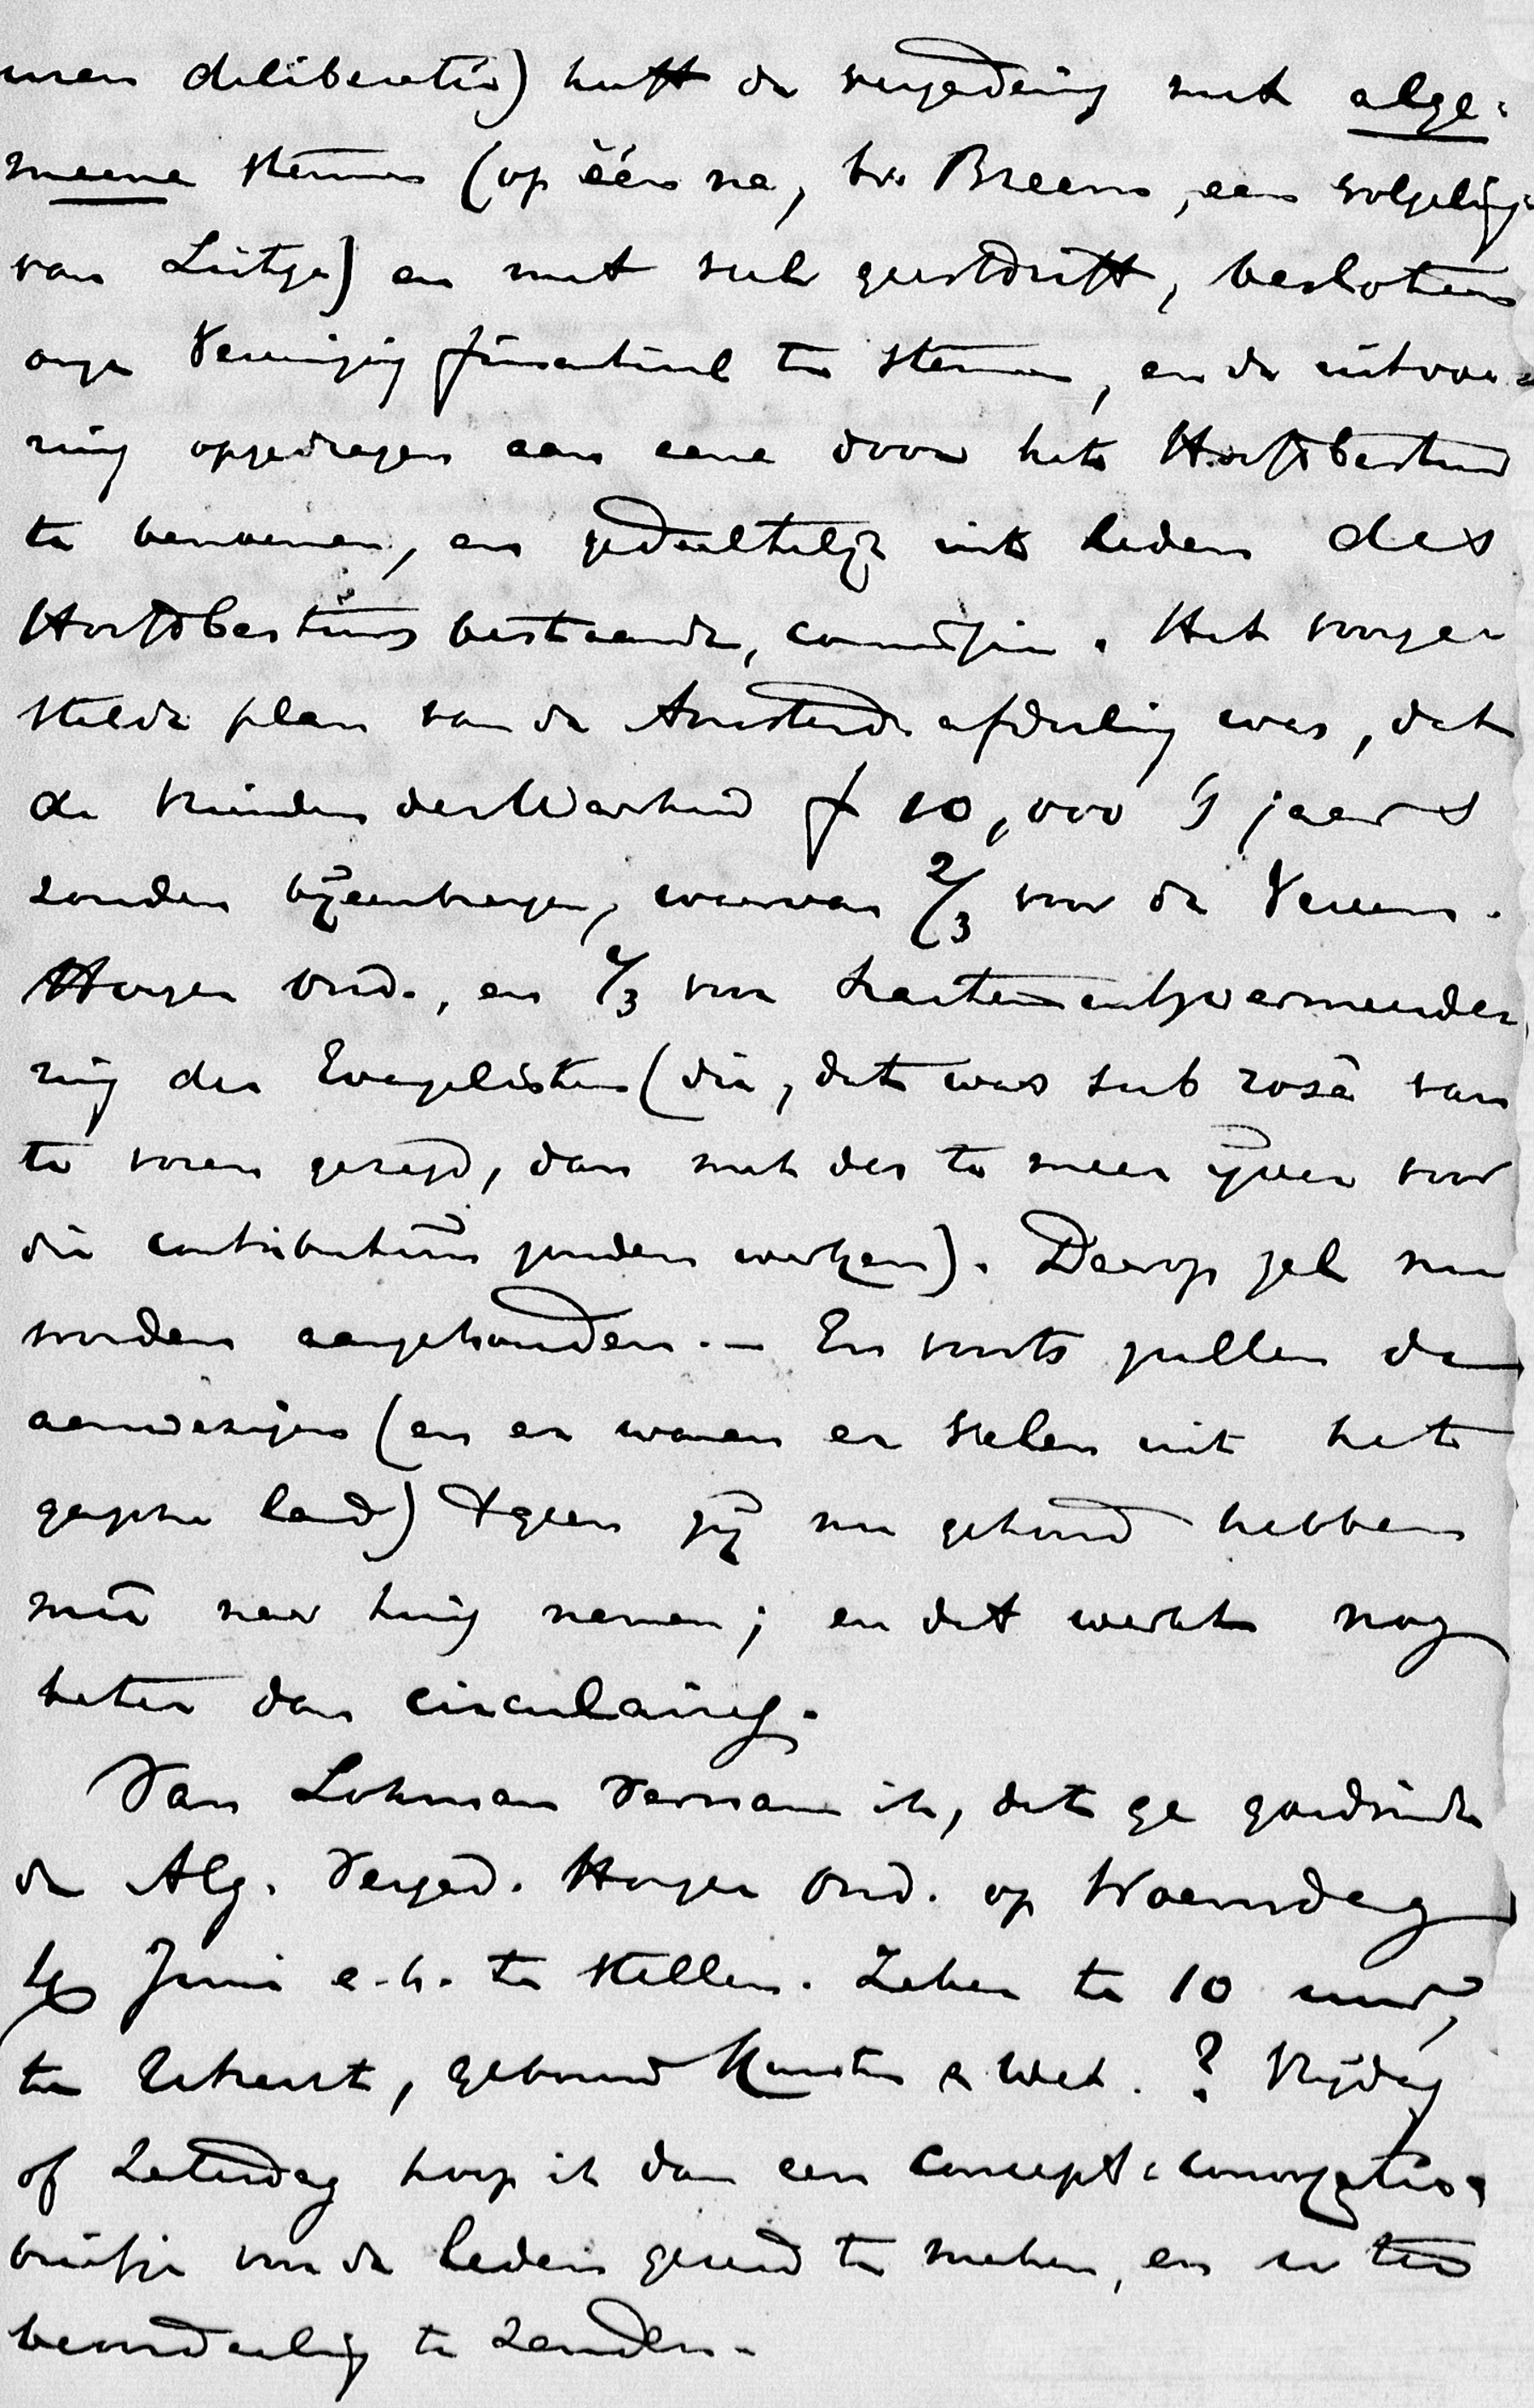 uren deliberatie) heeft de vergadering met alge-
meene stemmen (op één na, br. Breen, een volgeling
van Lütge) en met veel geestdrift, besloten
onze Vereeniging financieel te steunen, en de uitvoe-
ring opgedragen aan eene door het Hoofdbestuur
te benoemen, en gedeeltelijk uit leden des
Hoofdbestuurs bestaande, commissie. Het voorge-
stelde plan van de Amsterd. afdeeling was, dat
de Vrienden der Waarheid f 10,000 's jaars
zouden bijeenbrengen, waarvan 2/3 voor de Vereen.
Hooger Ond., en 1/3 voor tractementsvermeerde-
ring der Evangelisten (die, dat was sub rosâ van
te voren gezegd, dan met des te meer ijver voor
die contributiën zouden werken). Daarop zal nu
worden aangehouden. — En voorts zullen de
aanwezigen (en er waren er velen uit het
gansche land) 'tgeen zij nu gehoord hebben
mêe naar huis nemen; en dat werkt nog
beter dan circulaires.
Van Lohman vernam ik, dat ge goedvindt
de Alg. Vergad. Hooger Ond. op Woensdag
4 Juni e.k. te stellen. Zeker te 10 uur,
te Utrecht, gebouw Kunsten & Wet. ? Vrijdag
of Zaturdag hoop ik dan een concept-convocatie-
briefje voor de leden gereed te maken, en u ter
beoordeeling te zenden.